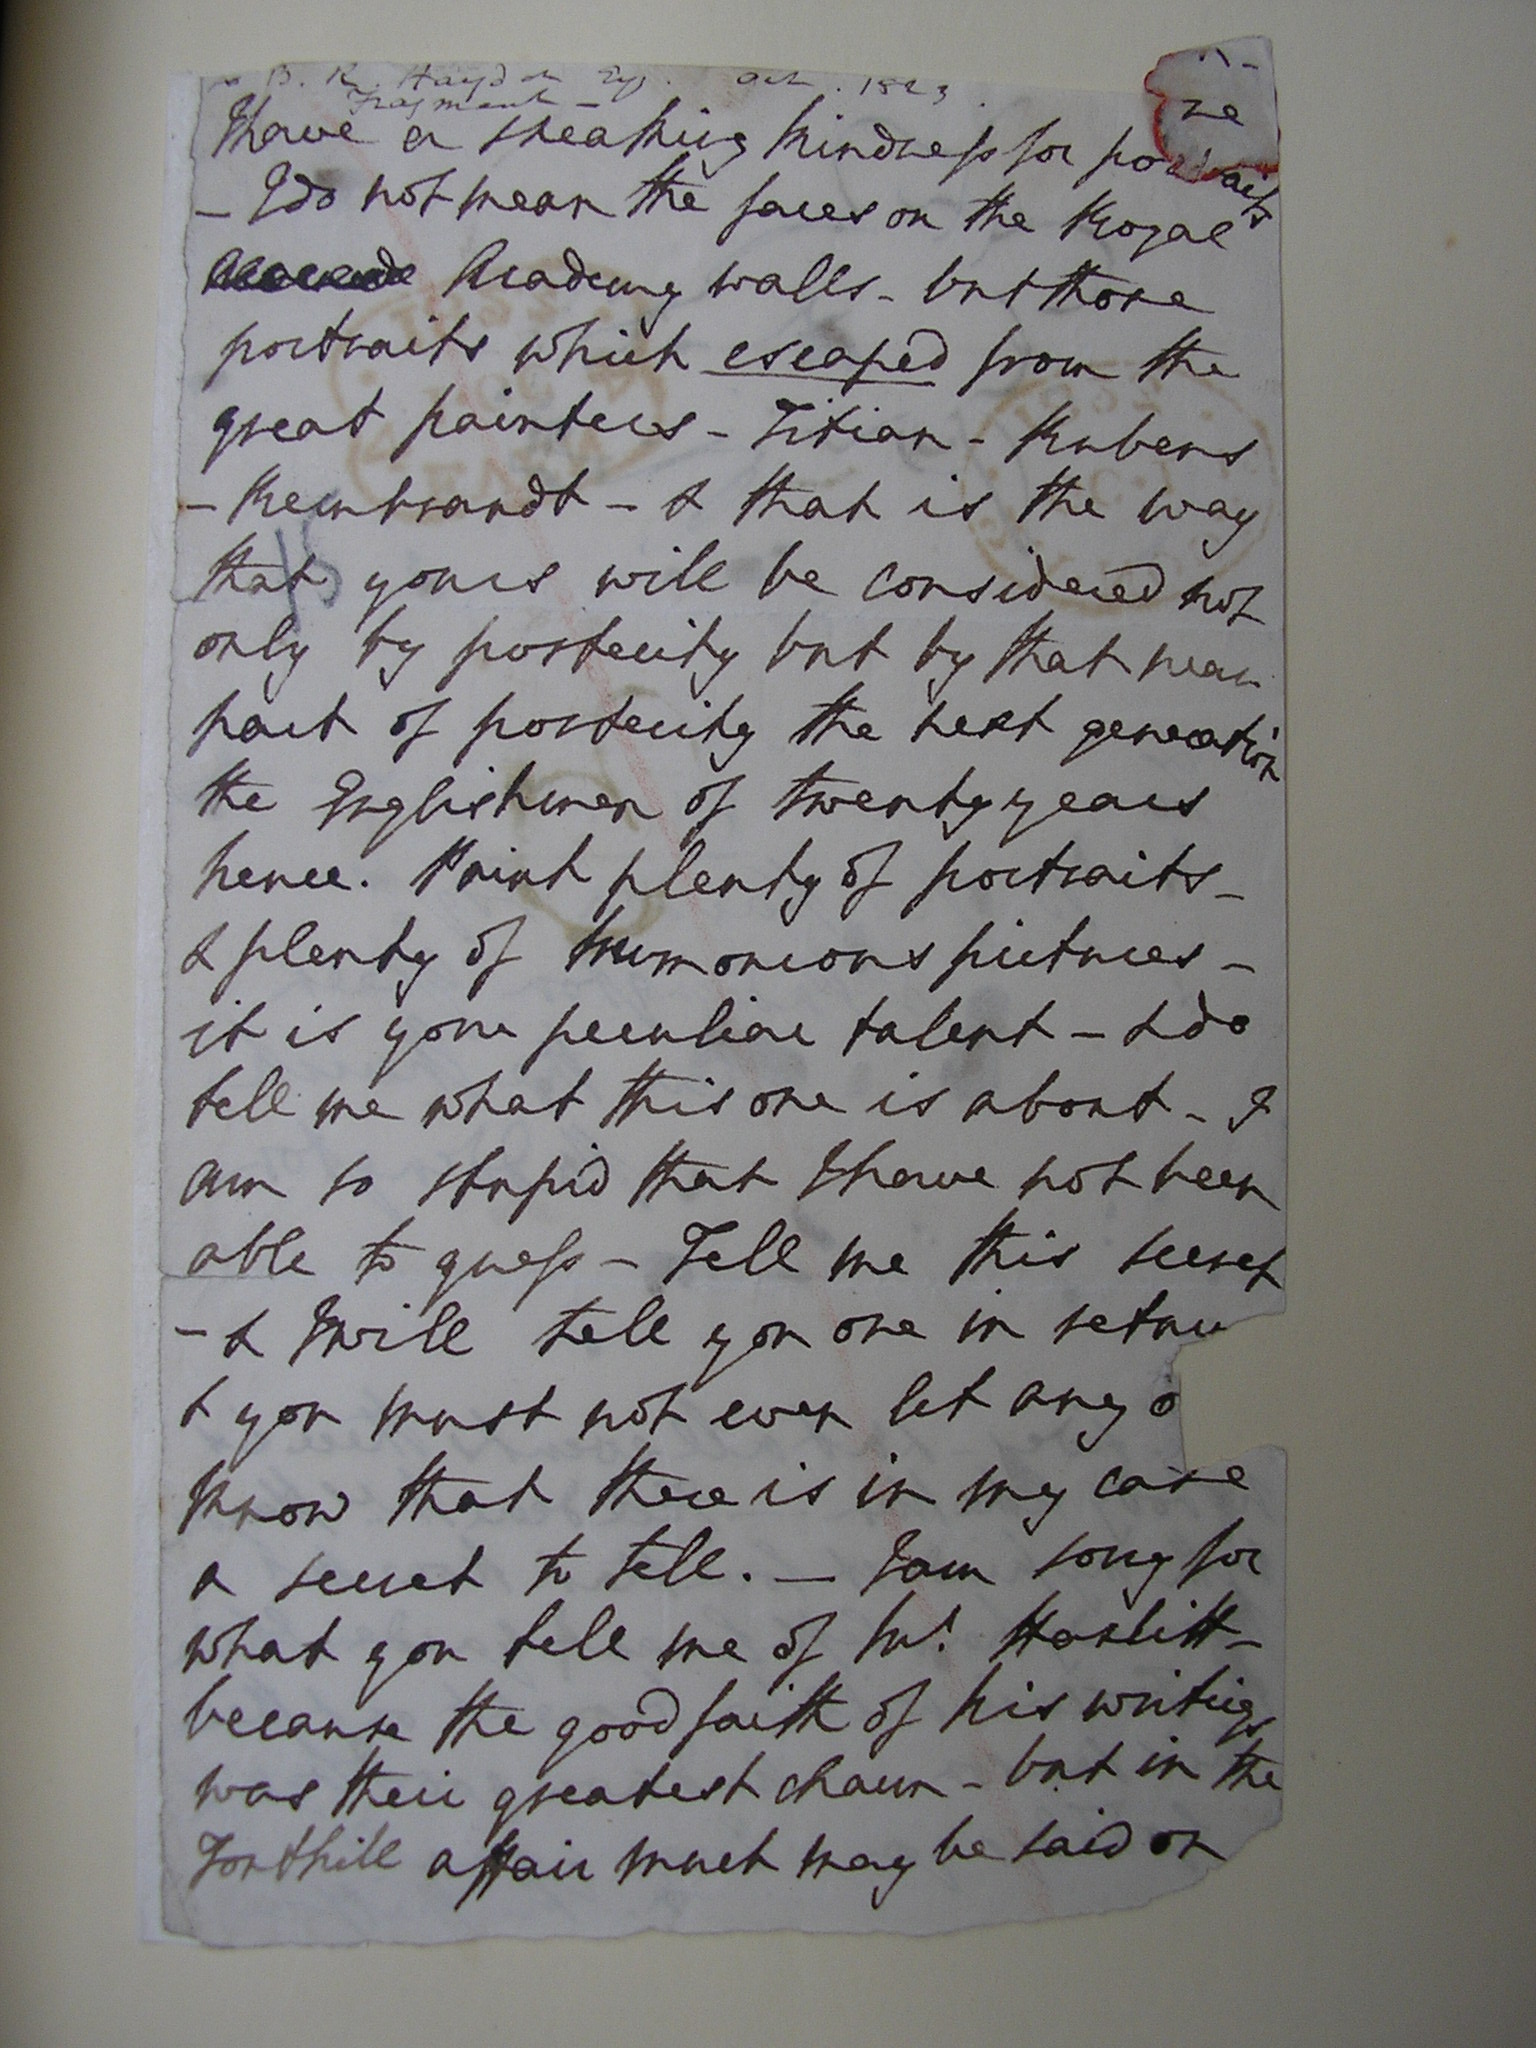 B. R. Haydon Esq. Oct. 1823.
Fragment -
ne
I have a sneaking kindness for portraits
- I do not mean the faces on the Royal
Academy walls - but those
portraits which escaped from the
great painters - Titian - Rubens
- Rembrandt - & that is the way
that yours will be considered not
only by posterity but by that near
part of posterity the next generation
the Englishmen of twenty years
hence. Paint plenty of portraits -
& plenty of humorous pictures -
it is your peculiar talent - & do
tell me what this one is about - I
am so stupid that I have not been
able to guess - Tell me this secret
- & I will tell you one in retur
& you must not even let any o
know that there is in my case
a secret to tell. - I am sorry for
what you tell me of Mr. Hazlitt -
because the good faith of his writings
was their greatest charm - but in the
Fonthill affair much may be said on